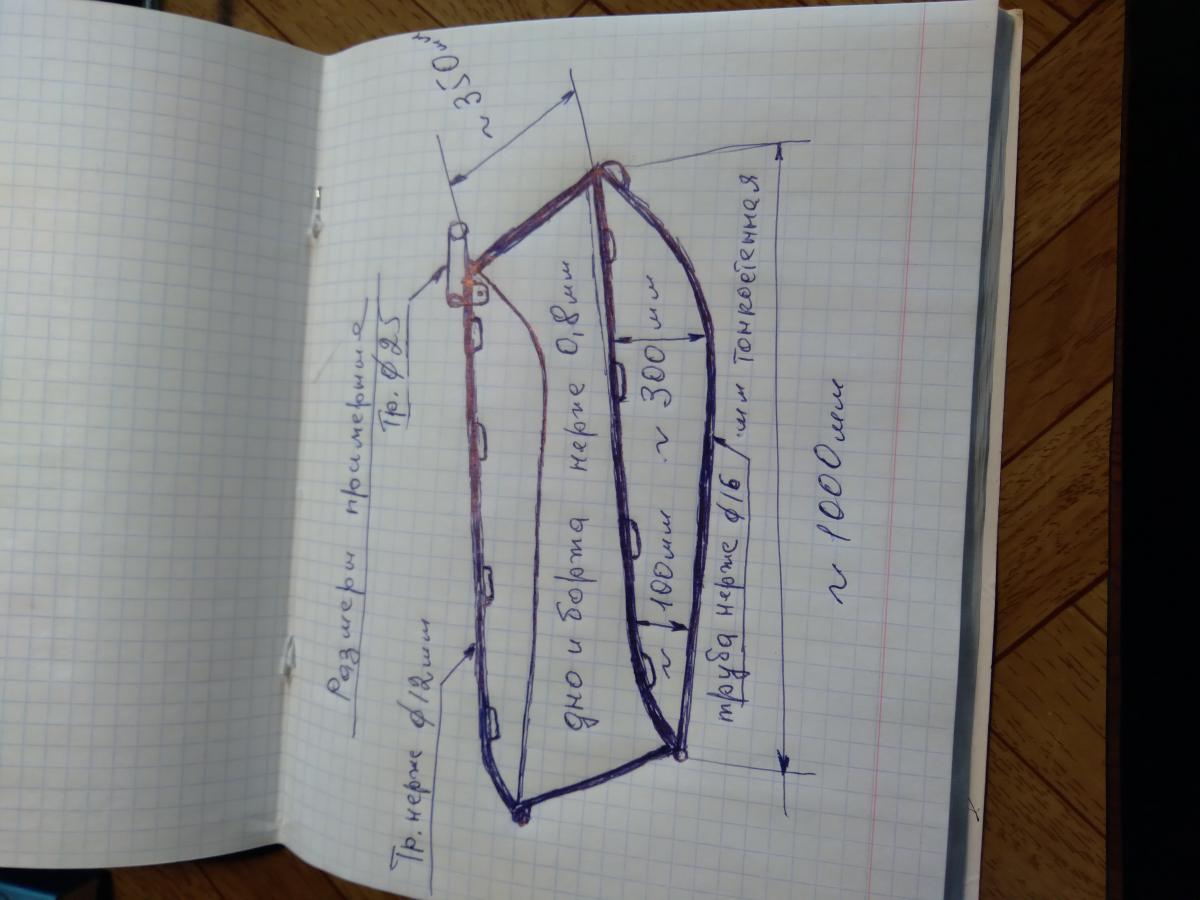 Размеры примерные
Тр. ф25
~ 350
Тр. нерже ф12мм
дно и боржа нерже 0,8мм
~ 100мм ~ 300 мм
труба нерже ф16 мм тонкостенная
~ 1000мм